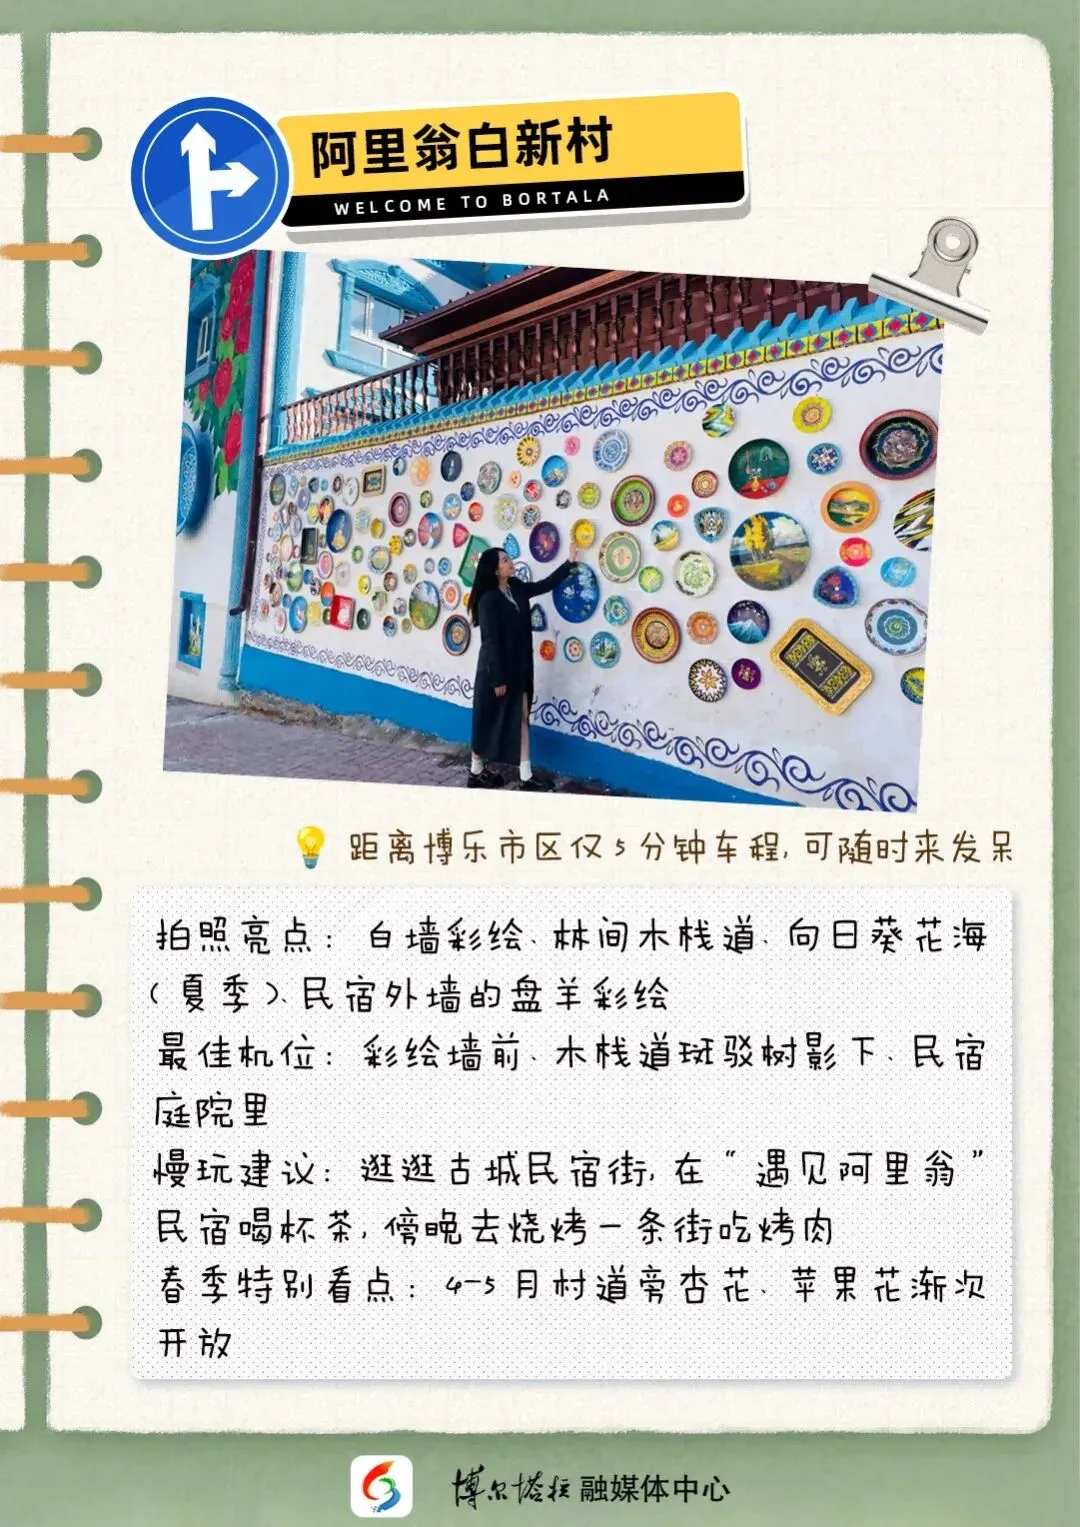 阿里翁白新村
WELCOME TO BORTALA
距离博乐市区仅5分钟车程,可随时来发呆
拍照亮点：白墙彩绘、林间木栈道、向日葵花海
（夏季）、民宿外墙的盘羊彩绘
最佳机位：彩绘墙前、木栈道斑驳树影下、民宿
庭院里
慢玩建议：逛逛古城民宿街,在“遇见阿里翁”
民宿喝杯茶,傍晚去烧烤一条街吃烤肉
春季特别看点：4-5月村道旁杏花、苹果花渐次
开放
博尔塔拉 融媒体中心